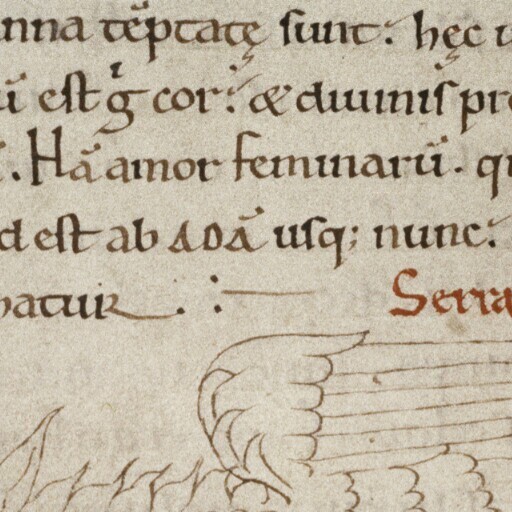 anna tēptatę sunt. hęc
ū est g̍ cor. & diuinis pr
. Hā amor feminarū. q
d est ab ADĀ usq; nunc.
natur . :— Serra